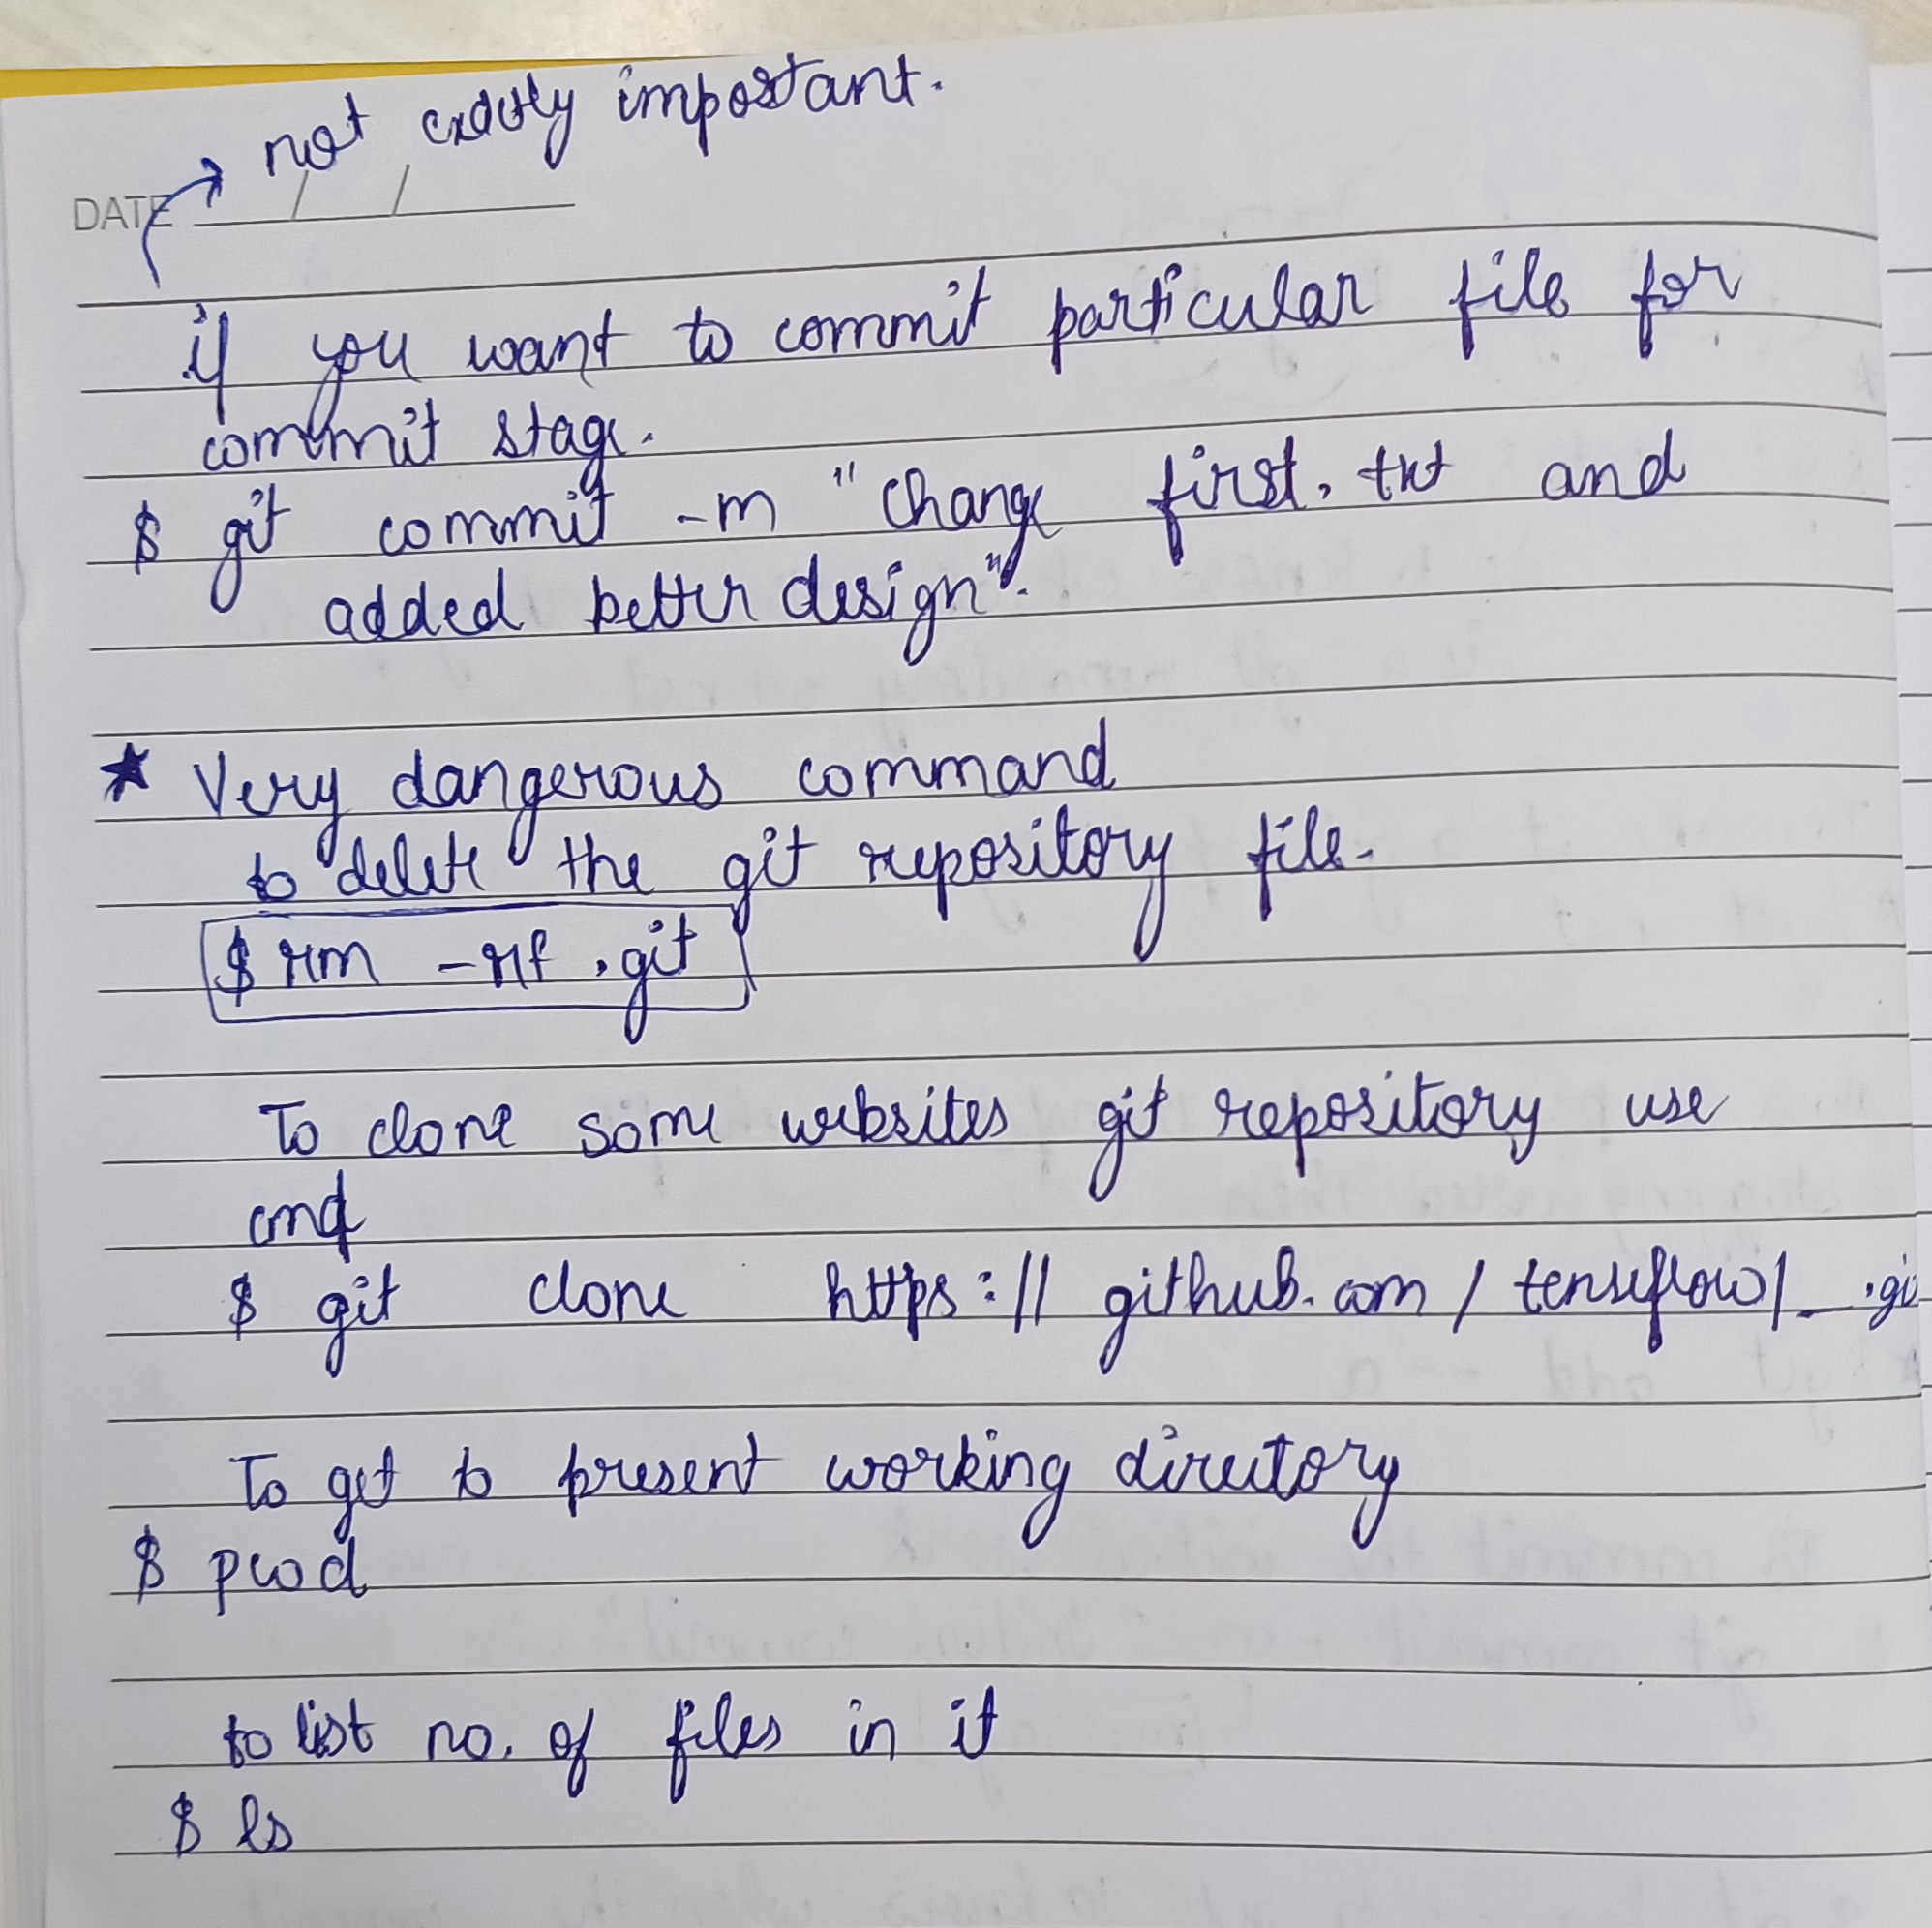 not exactly important.
DATE / /
if you want to commit particular file for
commit stage.
$ git commit -m "change first.txt and
added better design".
★ Very dangerous command
to delete the git repository file.
$ rm -rf .git
To clone some websites git repository use
cmd
$ git clone https://github.com/tensiflow/_.gi
To get to present working directory
$ pwd
to list no. of files in it
$ ls